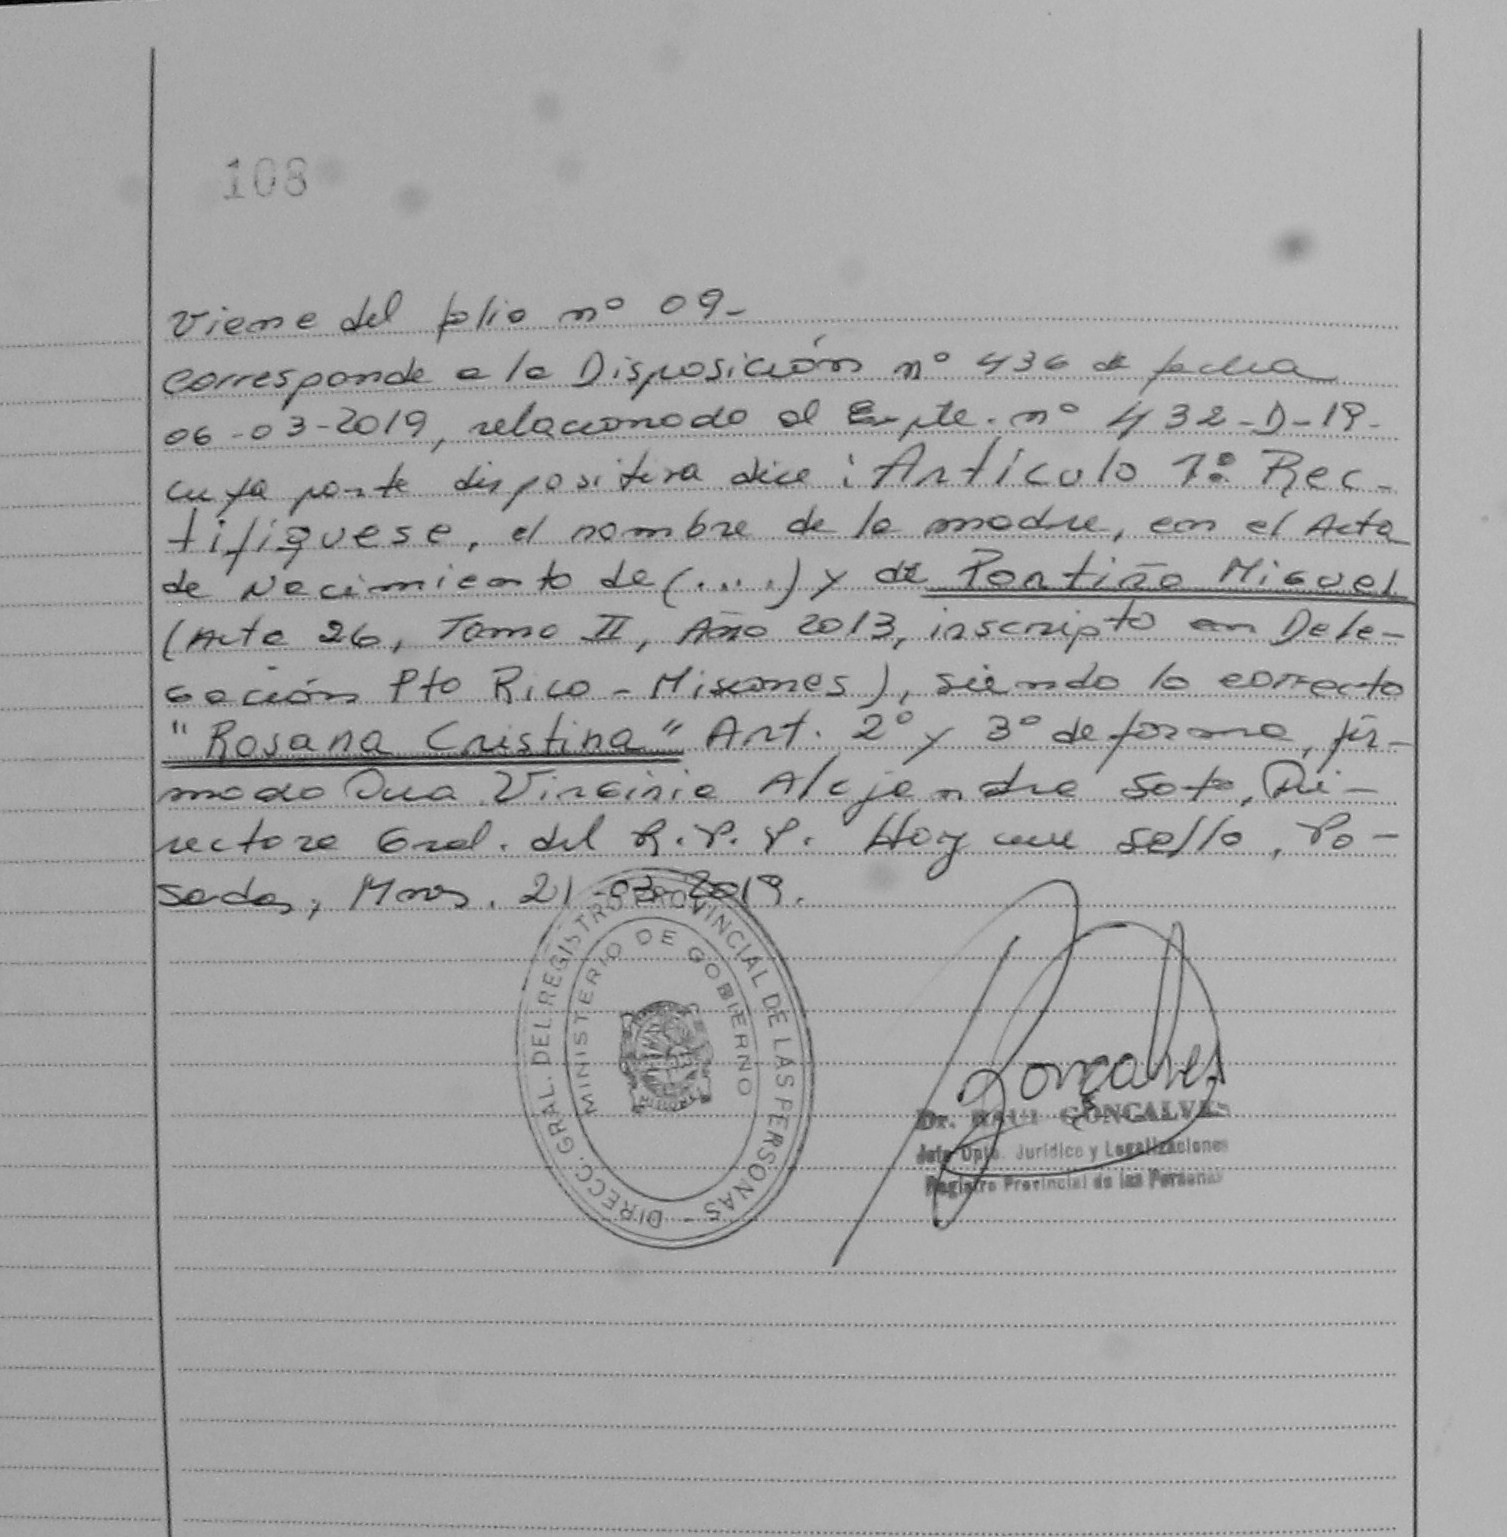 108
Viene del folio nº 09-
corresponde a la Disposición nº 436 de fecha
06-03-2019, relacionado al Expte. nº 432-D-19-
cuya parte dispositiva dice: Artículo 1º: Rec-
tifiquese, el nombre de la madre, en el Acta
de Nacimiento de (....) y de Portiño Miguel
(Acta 26, Tomo II, Año 2013, inscripto en Dele-
gación Pto Rico - Misiones), siendo lo correcto
"Rosana Cristina" Art. 2º y 3º de forma, fir-
mado Dra Virginia Alejandra Soto, Di-
rectora Gral. del R.P.P. Hoy sello, Po-
sadas, Mnes. 21-03-2019.
DIRECC. GRAL. DEL REGISTRO PROVINCIAL DE LAS PERSONAS -
MINISTERIO DE GOBIERNO
Gonçalves
Dr. RAUL GONÇALVES
Jefe Dpto. Jurídico y Legalizaciones
Registro Provincial de las Personas